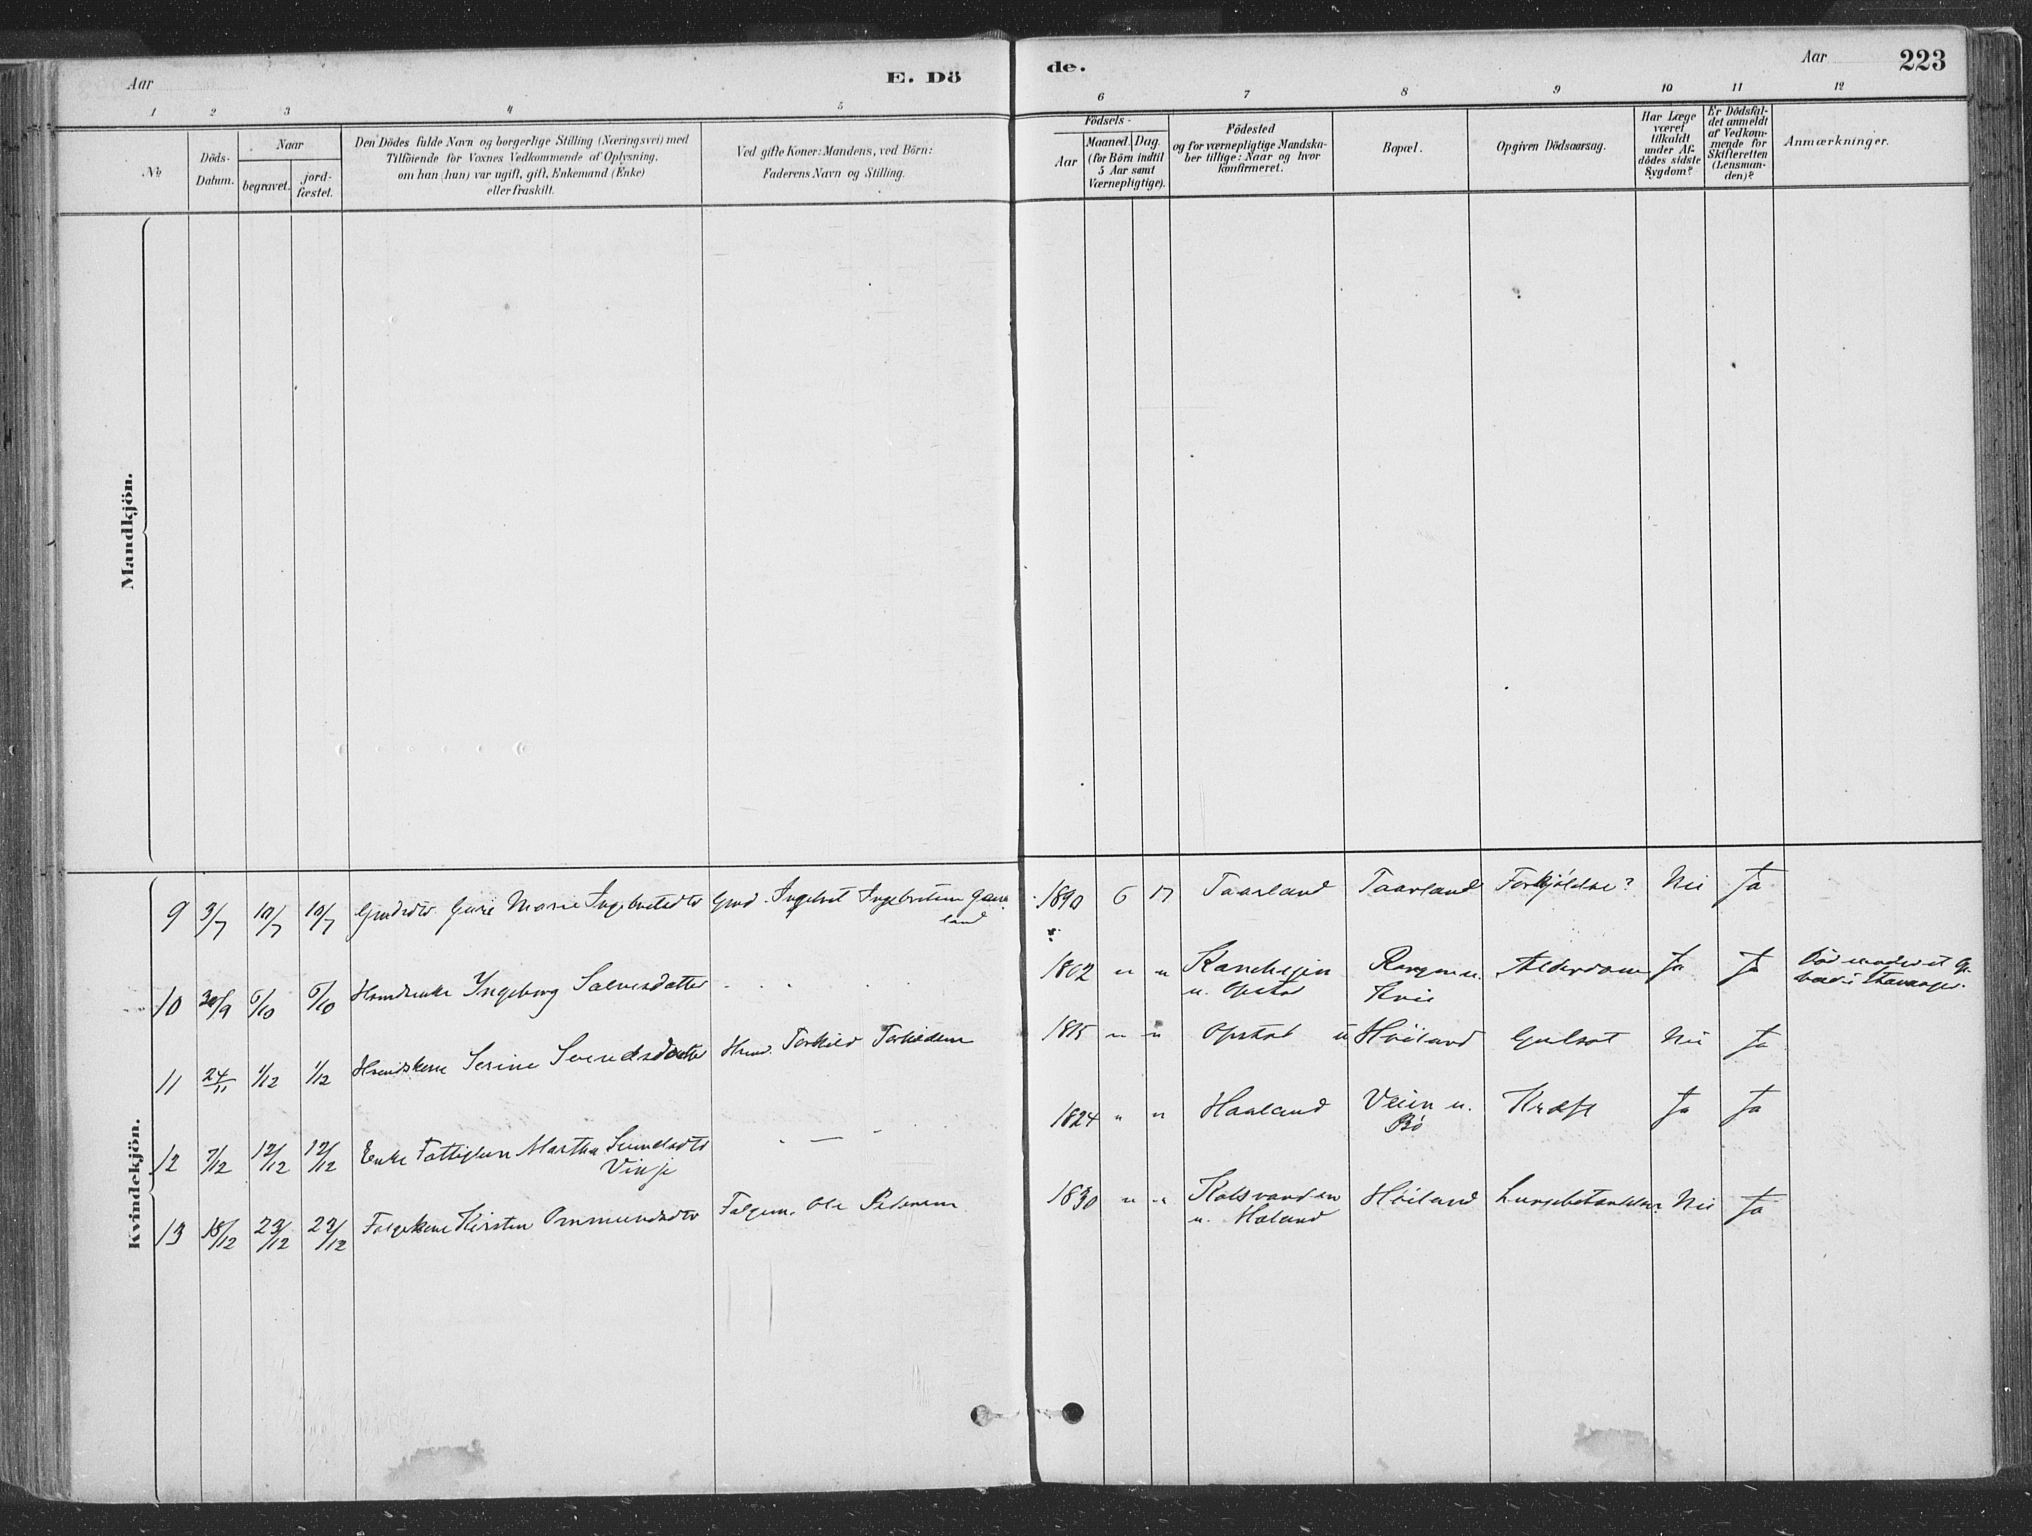 Aar
E. Dö
de.
Aar
223
1 2 3 4 5 6 7 8 9 10 11 12
№
Döds-
Datum.
Naar
begravet.
jord-
fæstet.
Den Dödes fulde Navn og borgerlige Stilling (Næringsvei) med
Tilföiende for Voxnes Vedkommende af Oplysning,
om han (hun) var ugift, gift, Enkemand (Enke)
eller fraskilt.
Ved gifte Koner: Mandens, ved Börn:
Faderens Navn og Stilling.
Födsels-
Aar
Maaned. Dag.
(for Börn indtil
5 Aar samt
Værnepligtige).
Födested
og for værnepligtige Mandska-
ber tillige: Naar og hvor
konfirmeret.
Bopæl.
Opgiven Dödsaarsag.
Har Læge
været
tilkaldt
under Af-
dödes sidste
Sygdom?
Er Dödsfal-
det anmeldt
af Vedkom-
mende for
Skifteretten
(Lensman-
den)?
Anmærkninger.
Mandkjön.
Kvindekjön.
9 3/7 10/7 10/7 Marie Ingebretsdtr Ingebret Ingebretsen
land
1890 6 17 Taarland Taarland Forkjölelse? Nei Ja
10 30/9 6/10 6/10 Ingeborg Salvesdatter
1802 " " Alderdom Ja Ja
u. Opstad Kvie
11 24/11 1/12 1/12 Serine Svendsdatter Hmd. Torkild Torkildsen
1815 " " Opstad Höiland Gulsot Nei Ja
12 7/12 12/12 12/12 Enke Martha
Vinje
1824 " " Haaland Veien u. Kræft Ja Ja
Bö
13 18/12 23/12 23/12 Kirsten Ommundsdtr Ole Pedersen
1830 " " Höiland Nei Ja
u. Höland